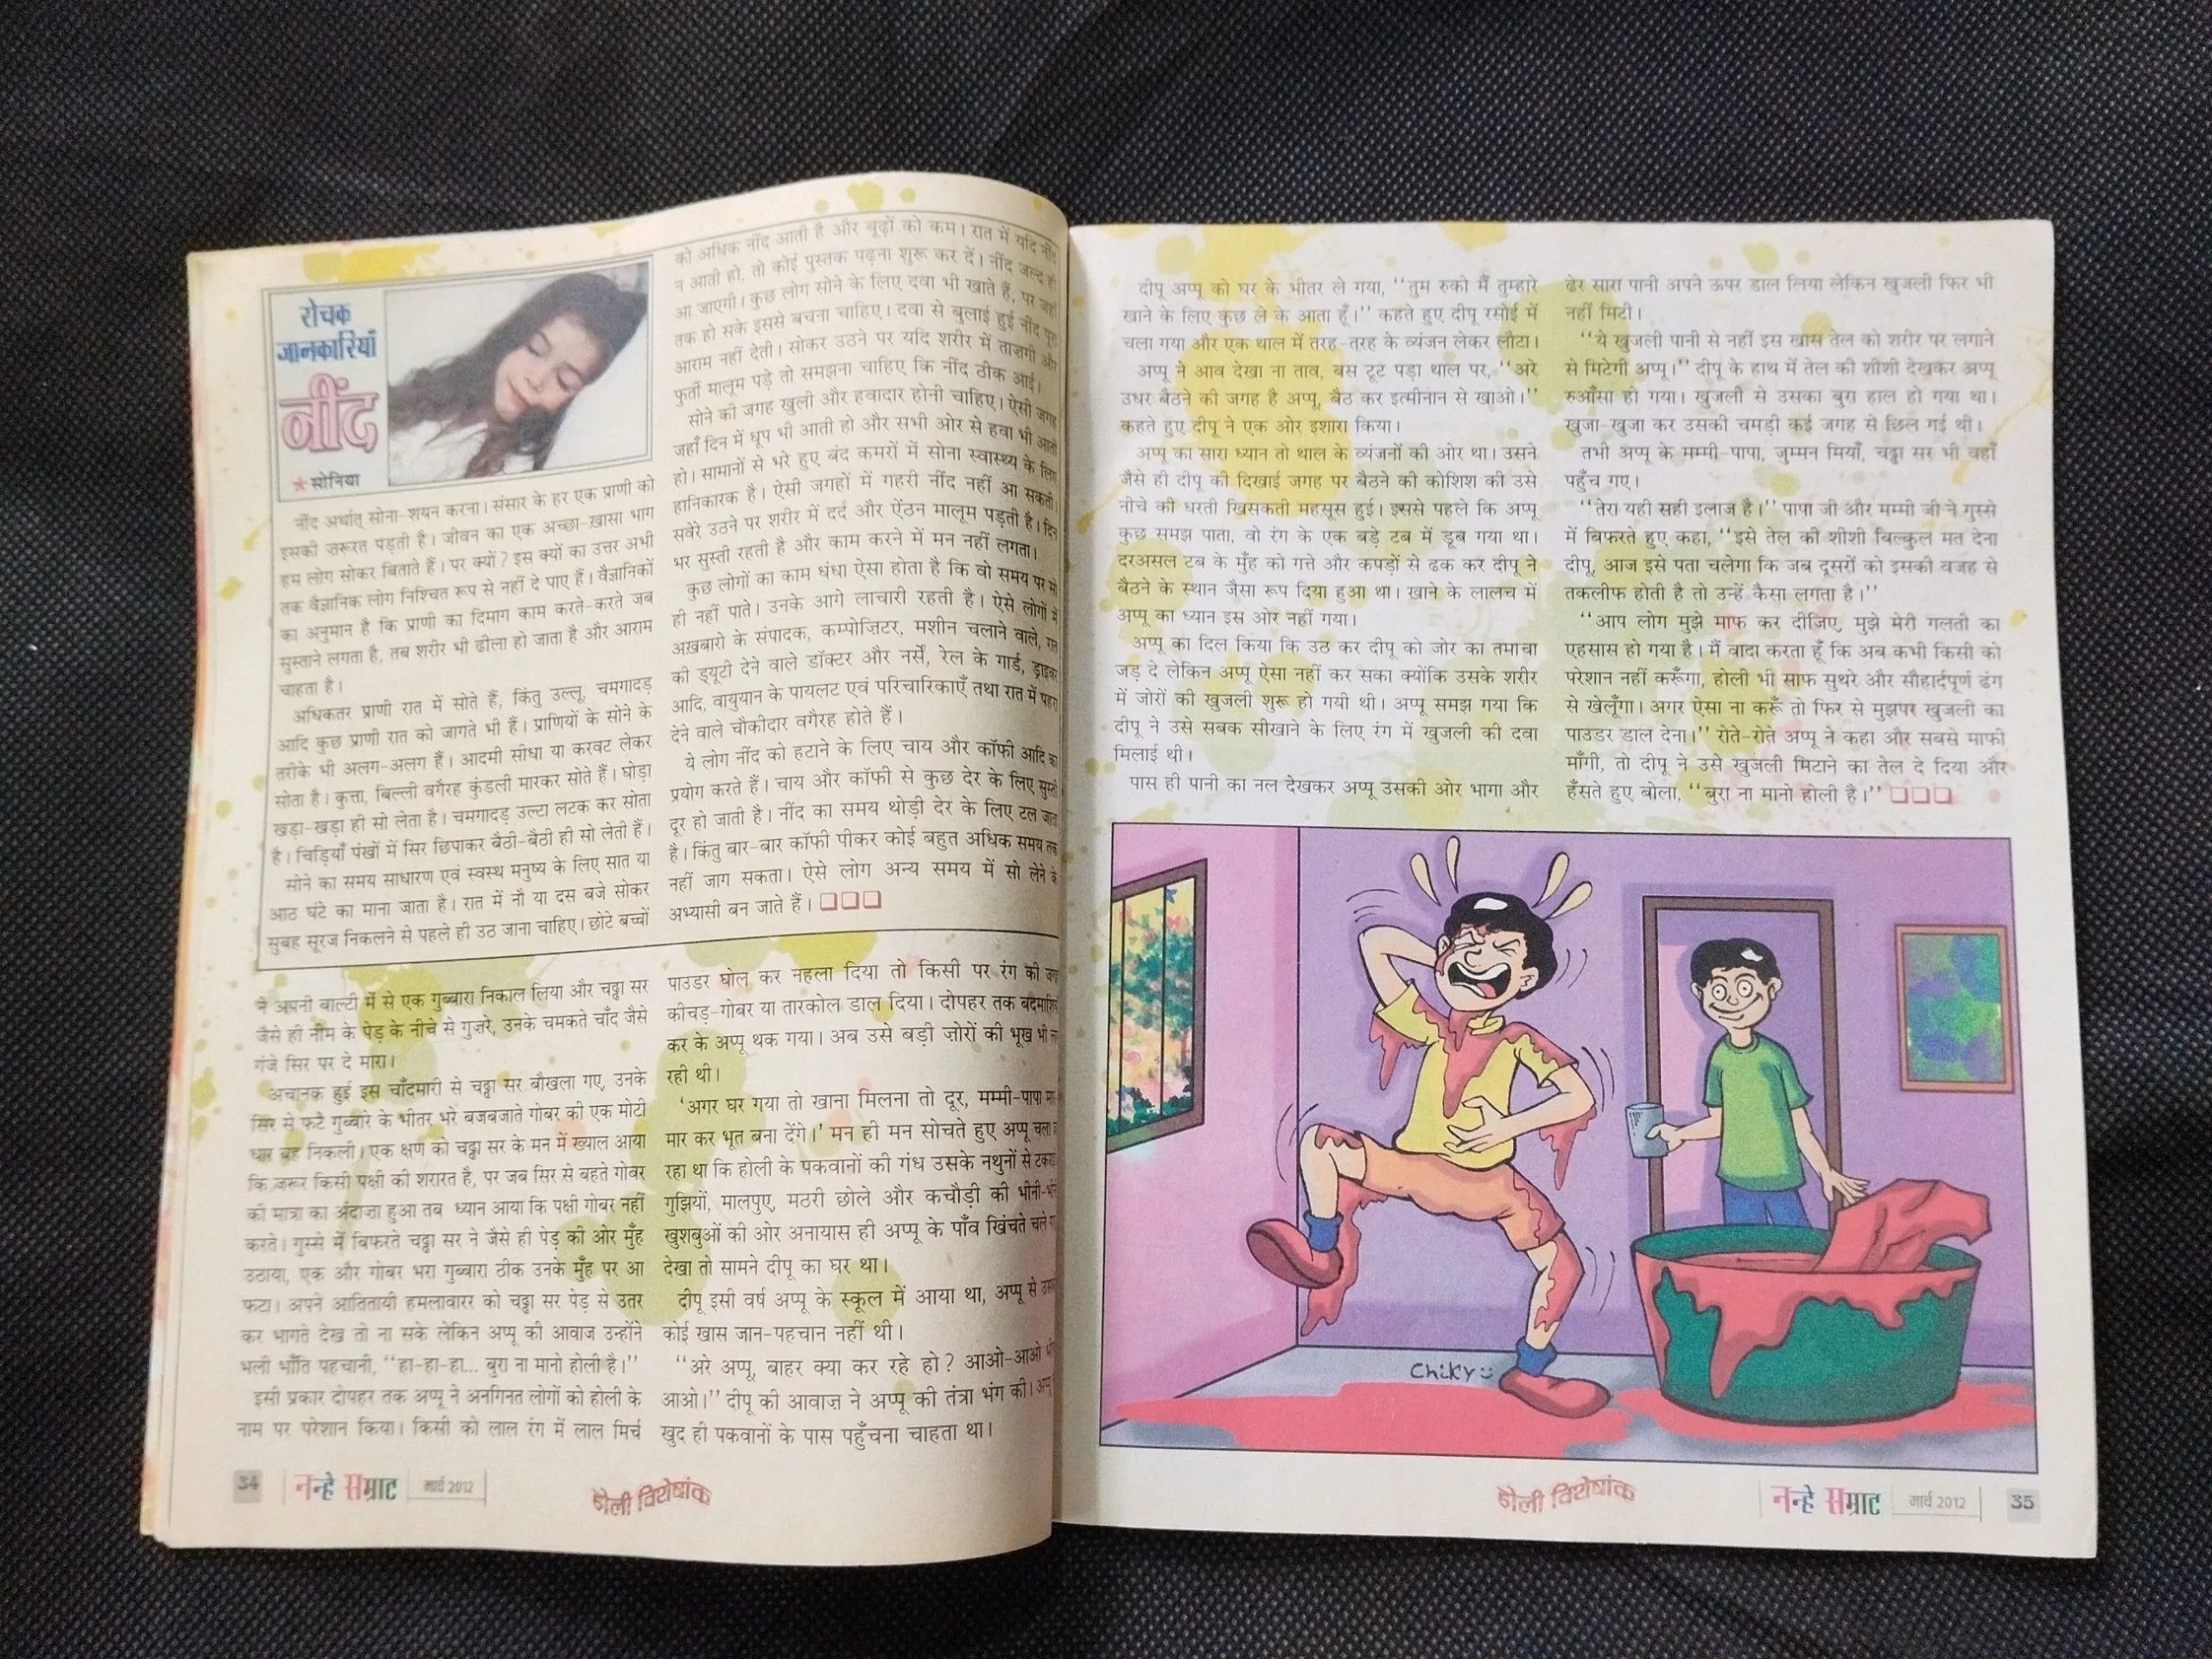 रोचक
जानकारियाँ
नींद
सोनिया
नींद अर्थात् सोना-शयन करना। संसार के हर एक प्राणी को
इसकी ज़रूरत पड़ती है। जीवन का एक अच्छा-ख़ासा भाग
हम लोग सोकर बिताते हैं। पर क्यों? इस क्यों का उत्तर अभी
तक वैज्ञानिक लोग निश्चित रूप से नहीं दे पाए हैं। वैज्ञानिकों
का अनुमान है कि प्राणी का दिमाग काम करते-करते जब
सुस्ताने लगता है, तब शरीर भी ढीला हो जाता है और आराम
चाहता है।
अधिकतर प्राणी रात में सोते हैं, किंतु उल्लू, चमगादड़
आदि कुछ प्राणी रात को जागते भी हैं। प्राणियों के सोने के
तरीके भी अलग-अलग हैं। आदमी सीधा या करवट लेकर
सोता है। कुत्ता, बिल्ली वगैरह कुंडली मारकर सोते हैं। घोड़ा
खड़ा-खड़ा ही सो लेता है। चमगादड़ उल्टा लटक कर सोता
है। चिड़ियाँ पंखों में सिर छिपाकर बैठी-बैठी ही सो लेती हैं।
सोने का समय साधारण एवं स्वस्थ मनुष्य के लिए सात या
आठ घंटे का माना जाता है। रात में नौ या दस बजे सोकर
सुबह सूरज निकलने से पहले ही उठ जाना चाहिए। छोटे बच्चों
को अधिक नींद आती है और बूढ़ों को कम। रात में यदि नींद
न आती हो, तो कोई पुस्तक पढ़ना शुरू कर दें। नींद जल्द ही
आ जाएगी। कुछ लोग सोने के लिए दवा भी खाते हैं, पर जहाँ
तक हो सके इससे बचना चाहिए। दवा से बुलाई हुई नींद पूरा
आराम नहीं देती। सोकर उठने पर यदि शरीर में ताज़गी और
फुर्ती मालूम पड़े तो समझना चाहिए कि नींद ठीक आई।
सोने की जगह खुली और हवादार होनी चाहिए। ऐसी जगह
जहाँ दिन में धूप भी आती हो और सभी ओर से हवा भी आती
हो। सामानों से भरे हुए बंद कमरों में सोना स्वास्थ्य के लिए
हानिकारक है। ऐसी जगहों में गहरी नींद नहीं आ सकती।
सवेरे उठने पर शरीर में दर्द और ऐंठन मालूम पड़ती है। दिन
भर सुस्ती रहती है और काम करने में मन नहीं लगता।
कुछ लोगों का काम धंधा ऐसा होता है कि वो समय पर सो
ही नहीं पाते। उनके आगे लाचारी रहती है। ऐसे लोगों में
अख़बारो के संपादक, कम्पोजिटर, मशीन चलाने वाले, रात
की ड्यूटी देने वाले डॉक्टर और नर्सें, रेल के गार्ड, ड्राइवर
आदि, वायुयान के पायलट एवं परिचारिकाएँ तथा रात में पहरा
देने वाले चौकीदार वगैरह होते हैं।
ये लोग नींद को हटाने के लिए चाय और कॉफी आदि का
प्रयोग करते हैं। चाय और कॉफी से कुछ देर के लिए सुस्ती
दूर हो जाती है। नींद का समय थोड़ी देर के लिए टल जाता
है। किंतु बार-बार कॉफी पीकर कोई बहुत अधिक समय तक
नहीं जाग सकता। ऐसे लोग अन्य समय में सो लेने के
अभ्यासी बन जाते हैं। □□□
ने अपनी बाल्टी में से एक गुब्बारा निकाल लिया और चड्ढा सर
जैसे ही नीम के पेड़ के नीचे से गुज़रे, उनके चमकते चाँद जैसे
गंजे सिर पर दे मारा।
अचानक हुई इस चाँदमारी से चड्ढा सर बौखला गए, उनके
सिर से फटे गुब्बारे के भीतर भरे बजबजाते गोबर की एक मोटी
धार बह निकली। एक क्षण को चड्ढा सर के मन में ख्याल आया
कि ज़रूर किसी पक्षी की शरारत है, पर जब सिर से बहते गोबर
की मात्रा का अंदाज़ा हुआ तब ध्यान आया कि पक्षी गोबर नहीं
करते। गुस्से में बिफरते चड्ढा सर ने जैसे ही पेड़ की ओर मुँह
उठाया, एक और गोबर भरा गुब्बारा ठीक उनके मुँह पर आ
फटा। अपने आतितायी हमलावारर को चड्ढा सर पेड़ से उतर
कर भागते देख तो ना सके लेकिन अप्पू की आवाज उन्होंने
भली भाँति पहचानी, ''हा-हा-हा... बुरा ना मानो होली है।''
इसी प्रकार दोपहर तक अप्पू ने अनगिनत लोगों को होली के
नाम पर परेशान किया। किसी को लाल रंग में लाल मिर्च
पाउडर घोल कर नहला दिया तो किसी पर रंग की
कीचड़-गोबर या तारकोल डाल दिया। दोपहर तक
कर के अप्पू थक गया। अब उसे बड़ी ज़ोरों की भूख भी
रही थी।
'अगर घर गया तो खाना मिलना तो दूर, मम्मी-पापा
मार कर भूत बना देंगे।' मन ही मन सोचते हुए अप्पू चला
रहा था कि होली के पकवानों की गंध उसके नथुनों से
गुझियों, मालपुए, मठरी छोले और कचौड़ी की
खुशबुओं की ओर अनायास ही अप्पू के पाँव खिंचते चले
देखा तो सामने दीपू का घर था।
दीपू इसी वर्ष अप्पू के स्कूल में आया था, अप्पू से
कोई खास जान-पहचान नहीं थी।
''अरे अप्पू, बाहर क्या कर रहे हो? आओ-आओ
आओ।'' दीपू की आवाज ने अप्पू की तंत्रा भंग की।
खुद ही पकवानों के पास पहुँचना चाहता था।
34 नन्हे सम्राट मार्च 2012 होली विशेषांक
दीपू अप्पू को घर के भीतर ले गया, ''तुम रुको मैं तुम्हारे
खाने के लिए कुछ ले के आता हूँ।'' कहते हुए दीपू रसोई में
चला गया और एक थाल में तरह-तरह के व्यंजन लेकर लौटा।
अप्पू ने आव देखा ना ताव, बस टूट पड़ा थाल पर, ''अरे
उधर बैठने की जगह है अप्पू, बैठ कर इत्मीनान से खाओ।''
कहते हुए दीपू ने एक ओर इशारा किया।
अप्पू का सारा ध्यान तो थाल के व्यंजनों की ओर था। उसने
जैसे ही दीपू की दिखाई जगह पर बैठने की कोशिश की उसे
नीचे की धरती खिसकती महसूस हुई। इससे पहले कि अप्पू
कुछ समझ पाता, वो रंग के एक बड़े टब में डूब गया था।
दरअसल टब के मुँह को गत्ते और कपड़ों से ढक कर दीपू ने
बैठने के स्थान जैसा रूप दिया हुआ था। खाने के लालच में
अप्पू का ध्यान इस ओर नहीं गया।
अप्पू का दिल किया कि उठ कर दीपू को जोर का तमाचा
जड़ दे लेकिन अप्पू ऐसा नहीं कर सका क्योंकि उसके शरीर
में जोरों की खुजली शुरू हो गयी थी। अप्पू समझ गया कि
दीपू ने उसे सबक सीखाने के लिए रंग में खुजली की दवा
मिलाई थी।
पास ही पानी का नल देखकर अप्पू उसकी ओर भागा और
ढेर सारा पानी अपने ऊपर डाल लिया लेकिन खुजली फिर भी
नहीं मिटी।
''ये खुजली पानी से नहीं इस खास तेल को शरीर पर लगाने
से मिटेगी अप्पू।'' दीपू के हाथ में तेल की शीशी देखकर अप्पू
रुआँसा हो गया। खुजली से उसका बुरा हाल हो गया था।
खुजा-खुजा कर उसकी चमड़ी कई जगह से छिल गई थी।
तभी अप्पू के मम्मी-पापा, जुम्मन मियाँ, चड्ढा सर भी वहाँ
पहुँच गए।
''तेरा यही सही इलाज है।'' पापा जी और मम्मी जी ने गुस्से
में बिफरते हुए कहा, ''इसे तेल की शीशी बिल्कुल मत देना
दीपू, आज इसे पता चलेगा कि जब दूसरों को इसकी वजह से
तकलीफ होती है तो उन्हें कैसा लगता है।''
''आप लोग मुझे माफ कर दीजिए, मुझे मेरी गलती का
एहसास हो गया है। मैं वादा करता हूँ कि अब कभी किसी को
परेशान नहीं करूँगा, होली भी साफ सुथरे और सौहार्दपूर्ण ढंग
से खेलूँगा। अगर ऐसा ना करूँ तो फिर से मुझपर खुजली का
पाउडर डाल देना।'' रोते-रोते अप्पू ने कहा और सबसे माफी
माँगी, तो दीपू ने उसे खुजली मिटाने का तेल दे दिया और
हँसते हुए बोला, ''बुरा ना मानो होली है।'' □□□
Chiky
होली विशेषांक नन्हे सम्राट मार्च 2012 35